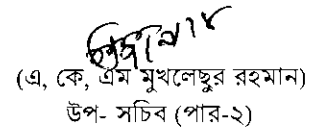 (এ, কে, এম মুখলেছুর রহমান)
উপ- সচিব (পার-২)